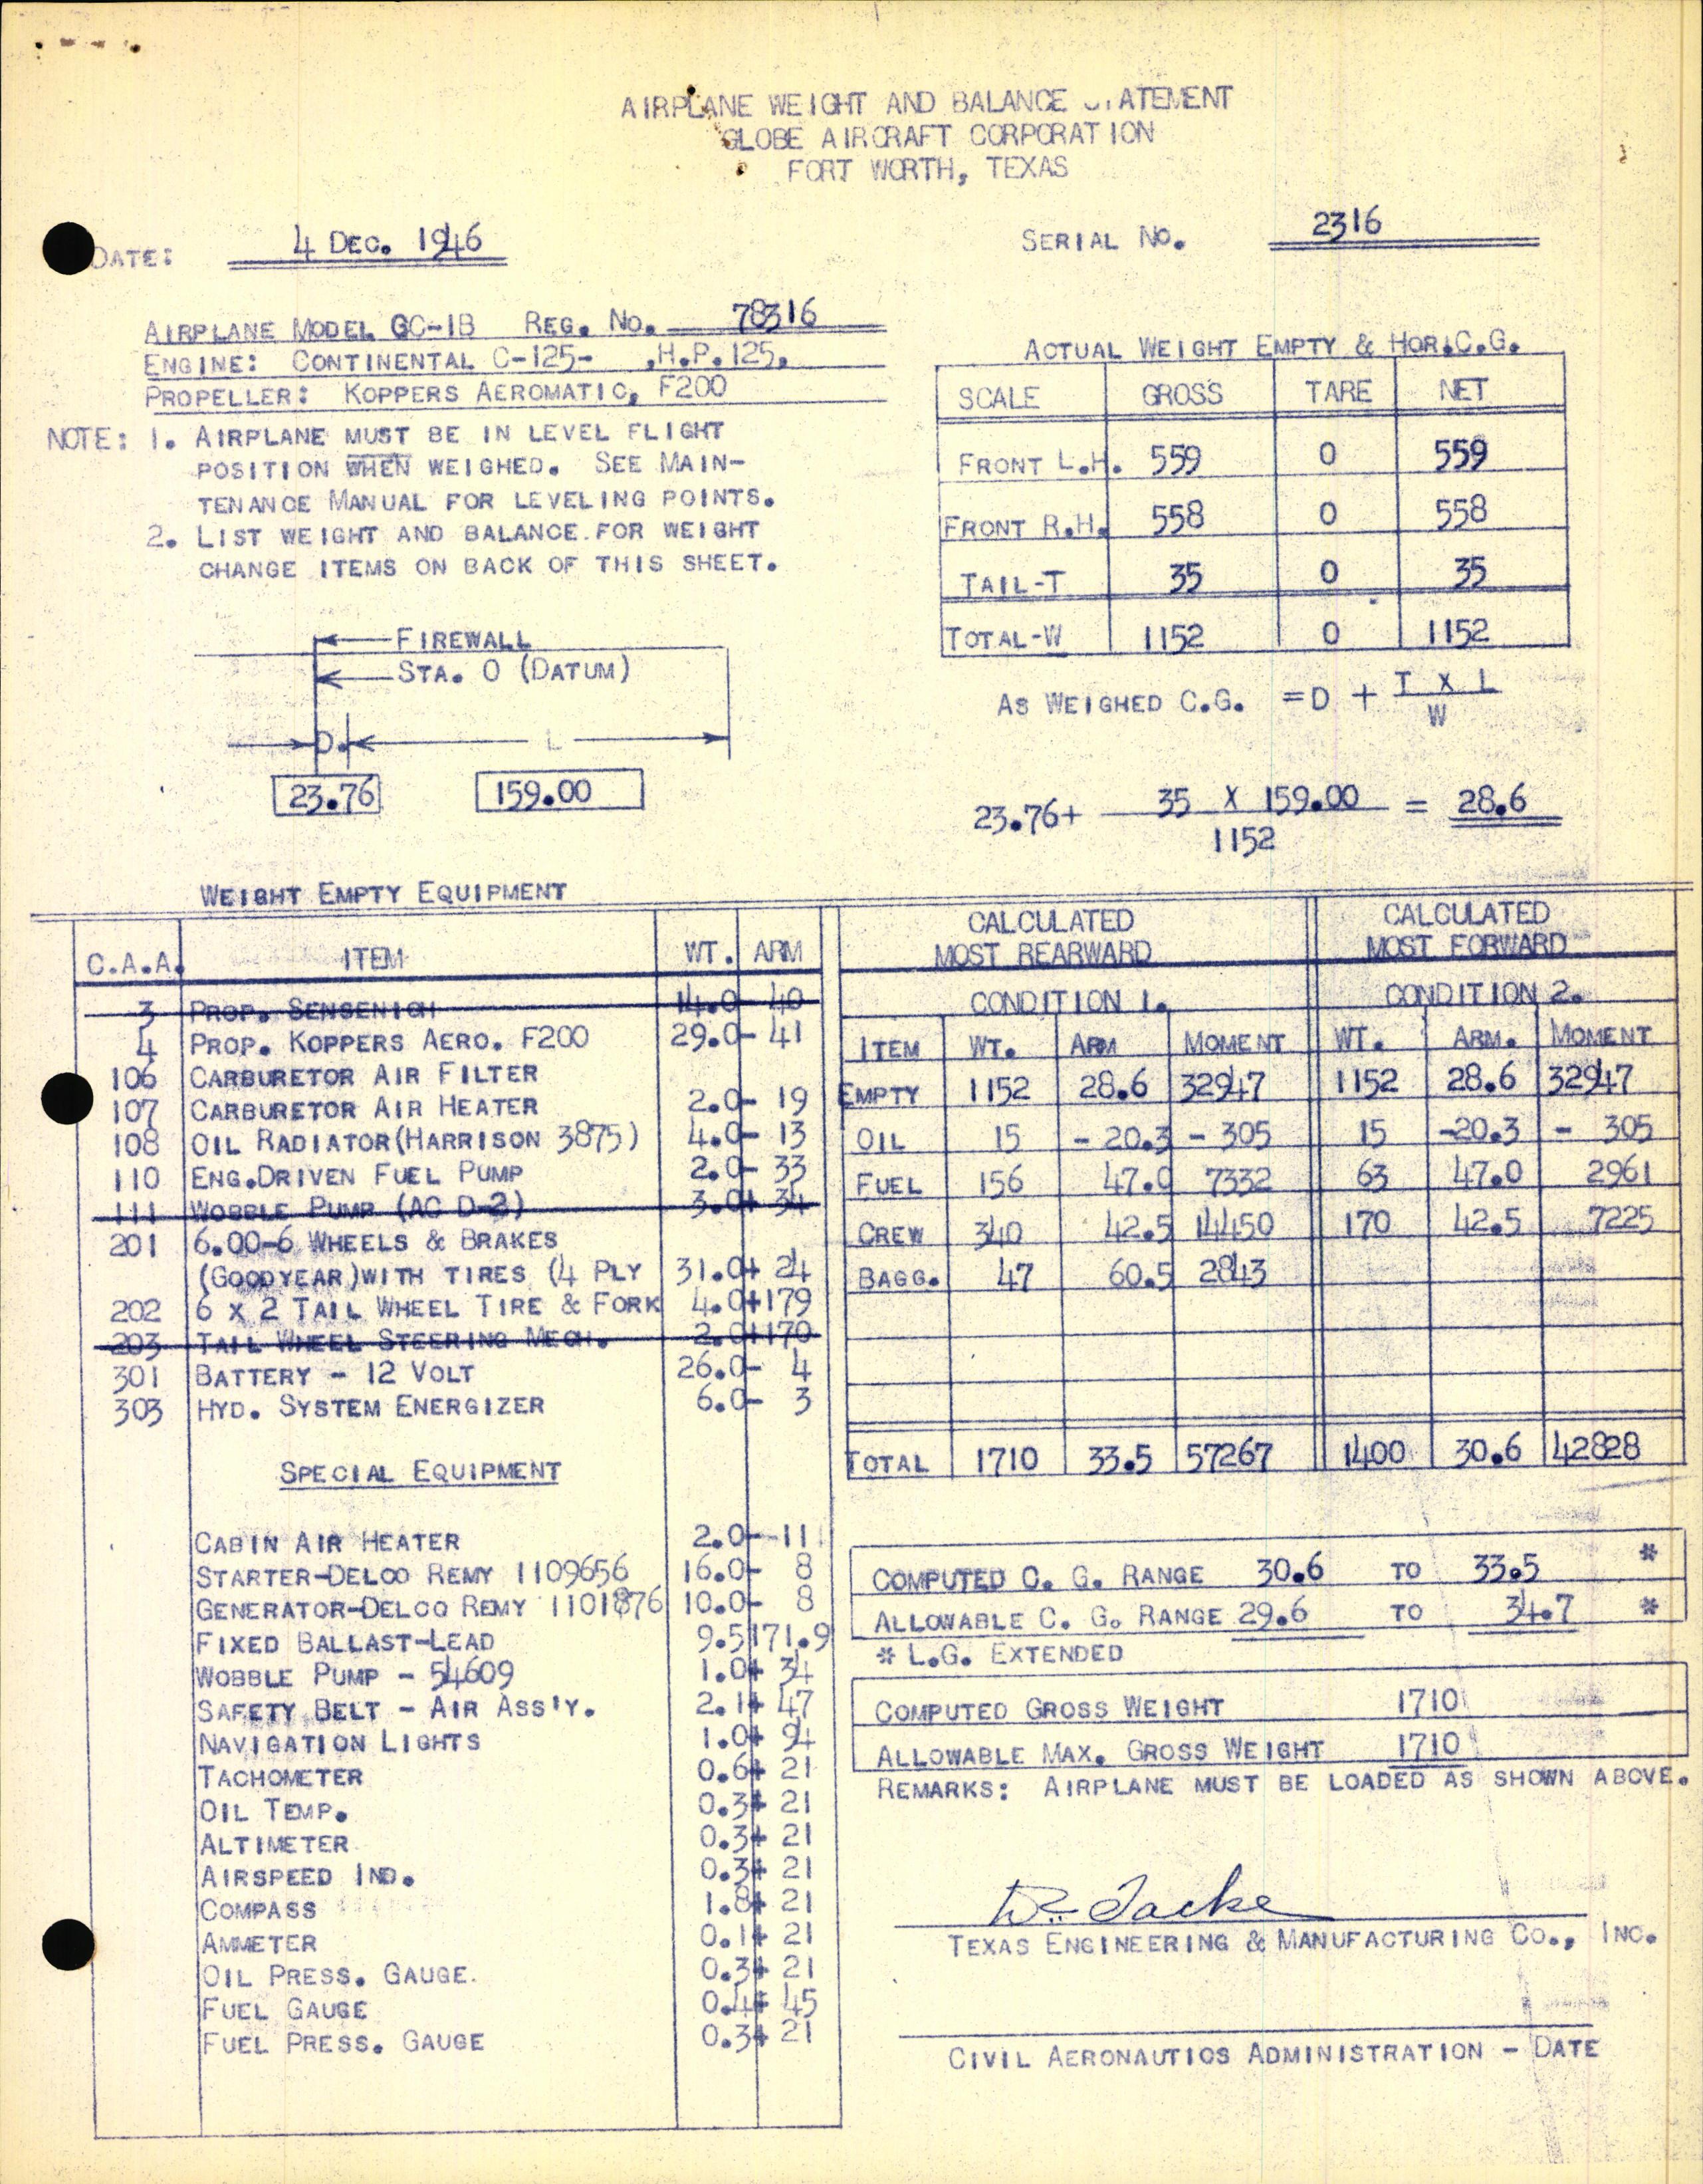 AIRPLANE WEIGHT AND BALANCE STATEMENT
GLOBE AIRCRAFT CORPORATION
FORT WORTH, TEXAS
DATE: 4 DEC. 1946
SERIAL NO. 2316
AIRPLANE MODEL GC-1B REG. NO. 78316
ENGINE: CONTINENTAL C-125- ,H.P. 125,
PROPELLER: KOPPERS AEROMATIC, F200
NOTE: 1. AIRPLANE MUST BE IN LEVEL FLIGHT
POSITION WHEN WEIGHED. SEE MAIN-
TENANCE MANUAL FOR LEVELING POINTS.
2. LIST WEIGHT AND BALANCE FOR WEIGHT
CHANGE ITEMS ON BACK OF THIS SHEET.
ACTUAL WEIGHT EMPTY & HOR.C.G.
SCALE GROSS TARE NET
FRONT L.H. 559 0 559
FRONT R.H. 558 0 558
TAIL-T 35 0 35
TOTAL-W 1152 0 1152
FIREWALL
STA. 0 (DATUM)
D. L
23.76 159.00
AS WEIGHED C.G. = D + T X L
W
23.76+ 35 X 159.00 = 28.6
1152
WEIGHT EMPTY EQUIPMENT
C.A.A. ITEM WT. ARM
3 PROP. SENSENICH 14.0- 40
4 PROP. KOPPERS AERO. F200 29.0- 41
106 CARBURETOR AIR FILTER
107 CARBURETOR AIR HEATER 2.0- 19
108 OIL RADIATOR(HARRISON 3875) 4.0- 13
110 ENG.DRIVEN FUEL PUMP 2.0- 33
111 WOBBLE PUMP (AC D-2) 3.0+ 34
201 6.00-6 WHEELS & BRAKES
(GOODYEAR)WITH TIRES (4 PLY 31.0+ 24
202 6 X 2 TAIL WHEEL TIRE & FORK 4.0+179
203 TAIL WHEEL STEERING MECH. 2.0+170
301 BATTERY - 12 VOLT 26.0- 4
303 HYD. SYSTEM ENERGIZER 6.0- 3
SPECIAL EQUIPMENT
CABIN AIR HEATER 2.0- -11
STARTER-DELCO REMY 1109656 16.0- 8
GENERATOR-DELCO REMY 1101876 10.0- 8
FIXED BALLAST-LEAD 9.5 171.9
WOBBLE PUMP - 54609 1.0+ 34
SAFETY BELT - AIR ASS'Y. 2.1+ 47
NAVIGATION LIGHTS 1.0+ 94
TACHOMETER 0.6+ 21
OIL TEMP. 0.3+ 21
ALTIMETER 0.3+ 21
AIRSPEED IND. 0.3+ 21
COMPASS 1.8+ 21
AMMETER 0.1+ 21
OIL PRESS. GAUGE. 0.3+ 21
FUEL GAUGE 0.4+ 45
FUEL PRESS. GAUGE 0.3+ 21
CALCULATED CALCULATED
MOST REARWARD MOST FORWARD
CONDITION 1. CONDITION 2.
ITEM WT. ARM MOMENT WT. ARM. MOMENT
EMPTY 1152 28.6 32947 1152 28.6 32947
OIL 15 - 20.3 - 305 15 -20.3 - 305
FUEL 156 47.0 7332 63 47.0 2961
CREW 340 42.5 14450 170 42.5 7225
BAGG. 47 60.5 2843
TOTAL 1710 33.5 57267 1400 30.6 42828
COMPUTED C. G. RANGE 30.6 TO 33.5 *
ALLOWABLE C. G. RANGE 29.6 TO 34.7 *
* L.G. EXTENDED
COMPUTED GROSS WEIGHT 1710
ALLOWABLE MAX. GROSS WEIGHT 1710
REMARKS: AIRPLANE MUST BE LOADED AS SHOWN ABOVE.
TEXAS ENGINEERING & MANUFACTURING CO., INC.
CIVIL AERONAUTICS ADMINISTRATION - DATE